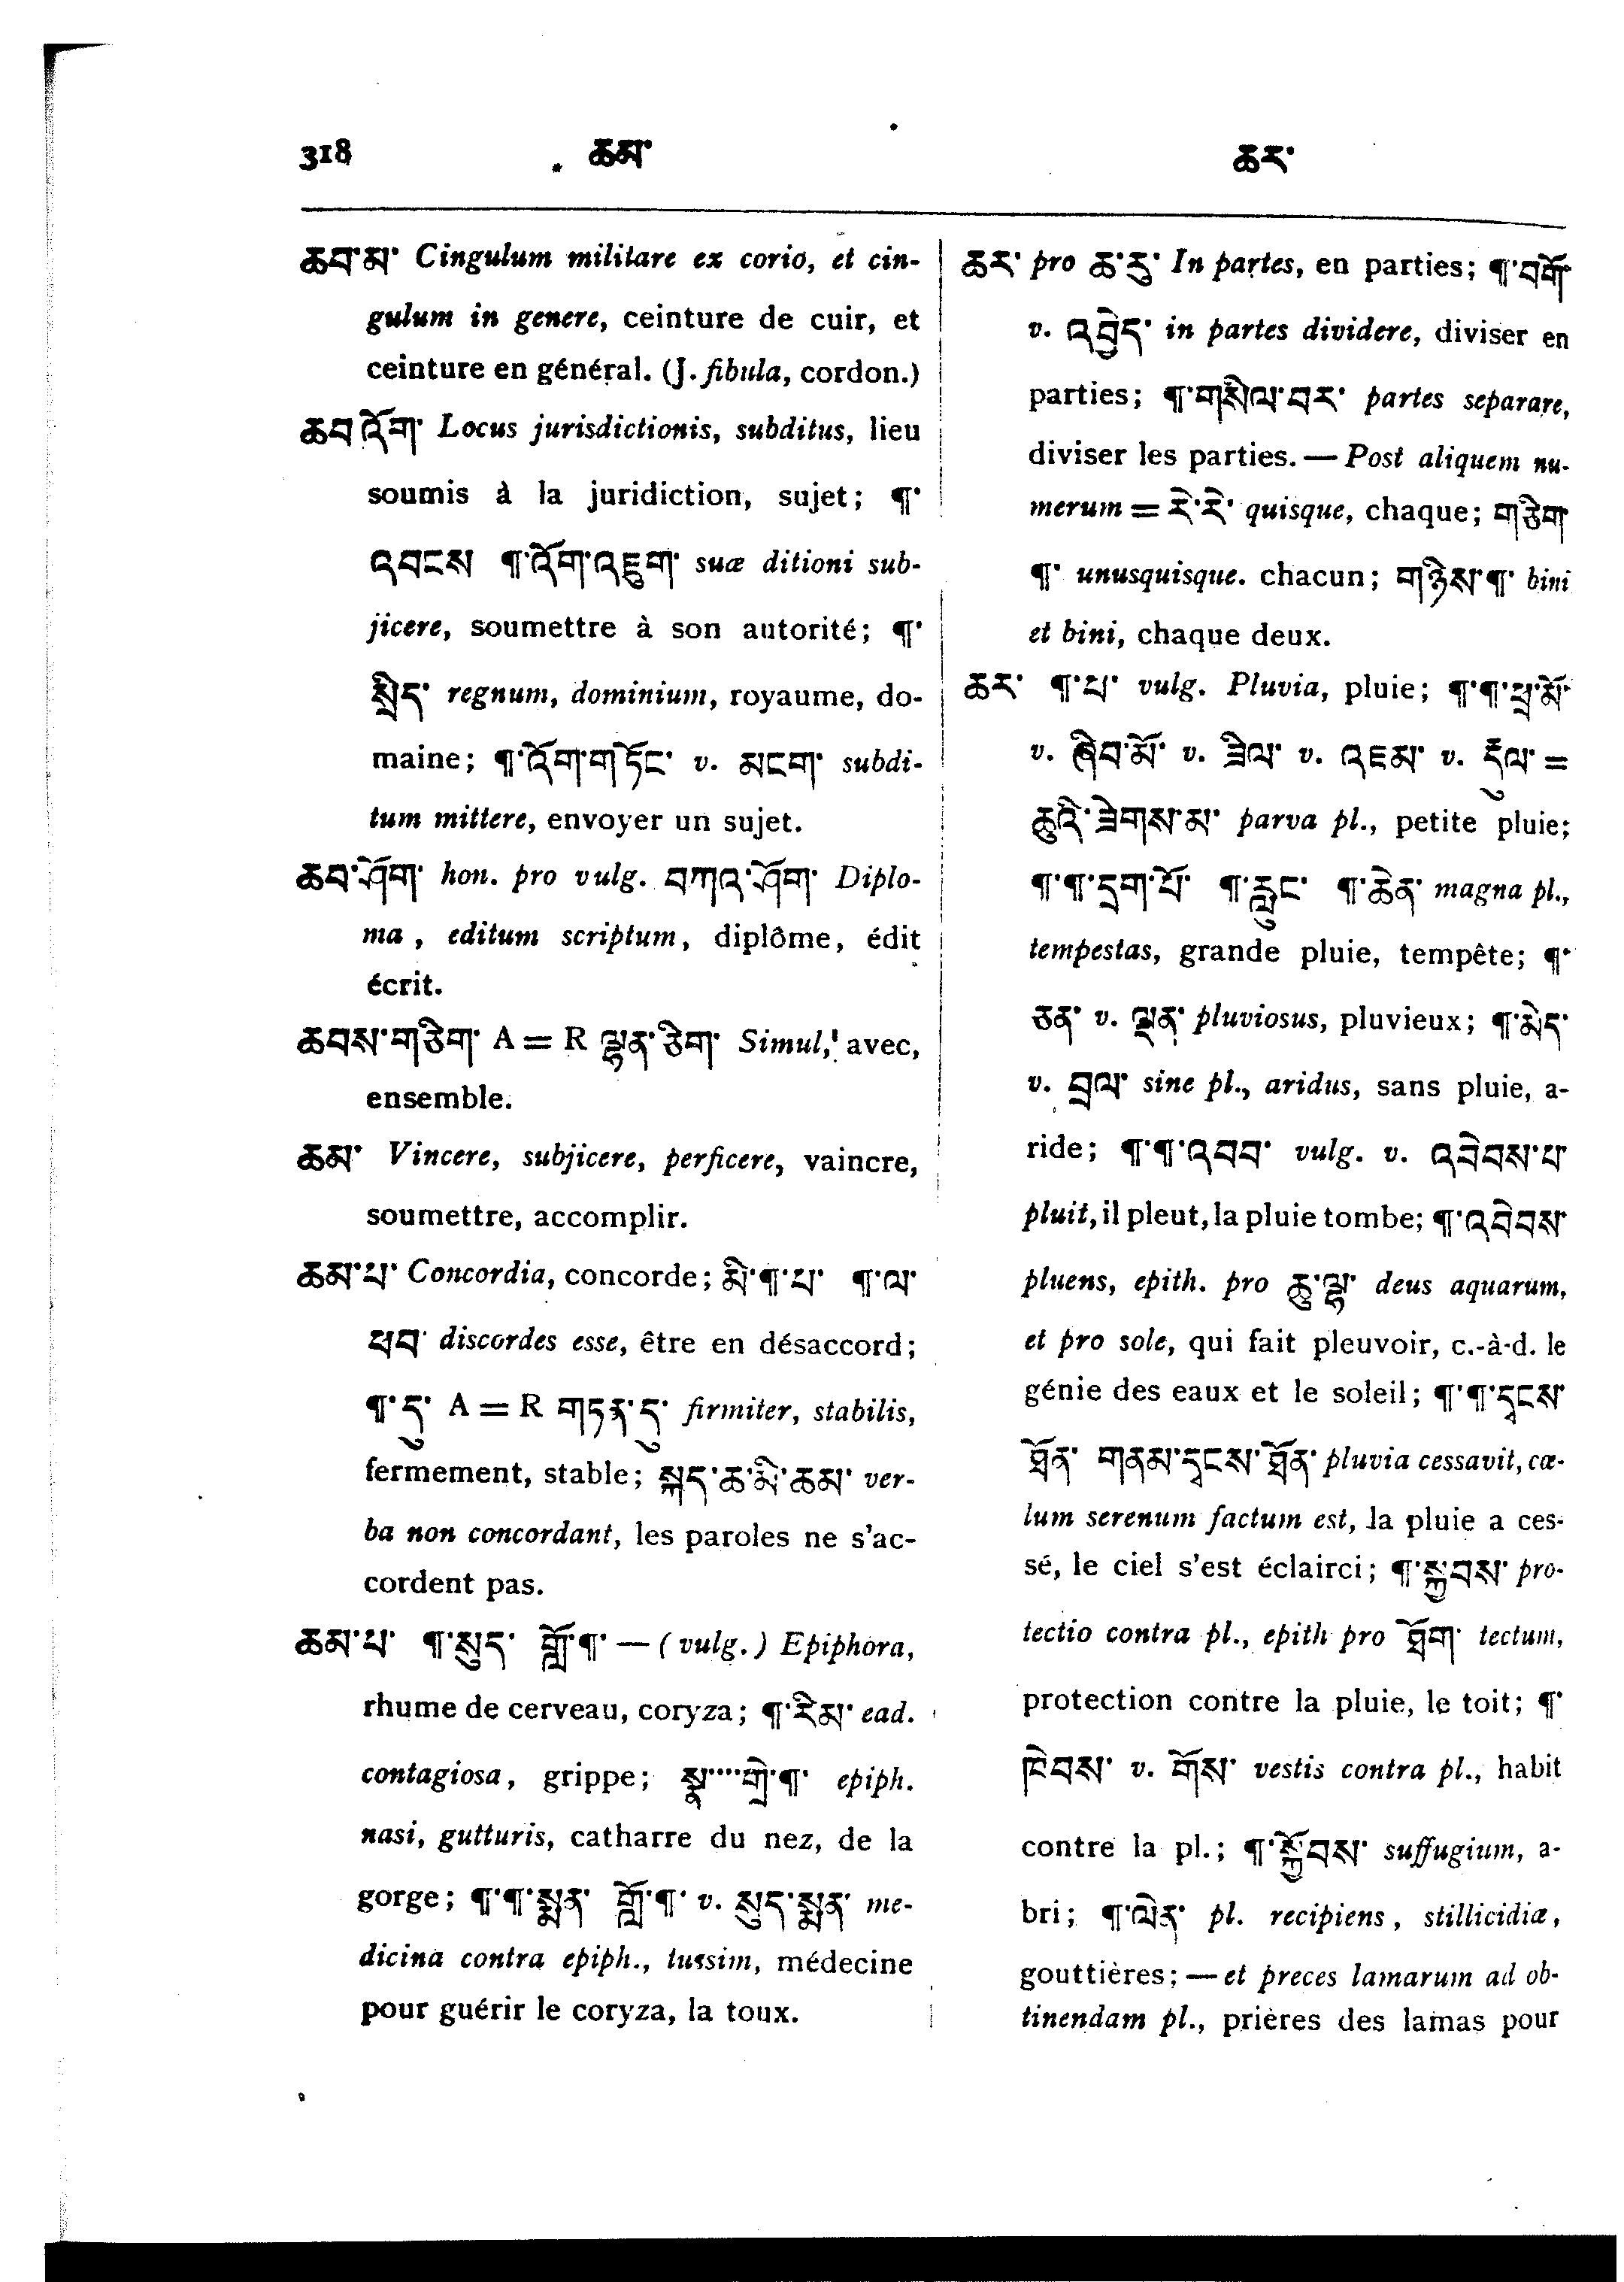 318 ཆམ་ ཆར་
ཆབ་མ་ Cingulum militare ex corio, et cin-
gulum in genere, ceinture de cuir, et
ceinture en général. (J. fibula, cordon.)
ཆབ་འོག་ Locus jurisdictionis, subditus, lieu
soumis à la juridiction, sujet; ¶་
འབངས ¶་འོག་འཇུག་ suæ ditioni sub-
jicere, soumettre à son autorité; ¶་
སྲིད་ regnum, dominium, royaume, do-
maine; ¶་འོག་གཏོང་ v. མངག་ subdi-
tum mittere, envoyer un sujet.
ཆབ་ཤོག་ hon. pro vulg. བཀའ་ཤོག་ Diplo-
ma, editum scriptum, diplôme, édit
écrit.
ཆབས་གཅིག་ A = R ལྷན་ཅིག་ Simul, avec,
ensemble.
ཆམ་ Vincere, subjicere, perficere, vaincre,
soumettre, accomplir.
ཆམ་པ་ Concordia, concorde; མི་¶་པ་ ¶་ལ་
ཕབ་ discordes esse, être en désaccord;
¶་དུ་ A = R གཏན་དུ་ firmiter, stabilis,
fermement, stable; སྐད་ཆ་མི་ཆམ་ ver-
ba non concordant, les paroles ne s'ac-
cordent pas.
ཆམ་པ་ ¶་སུད་ གློ་¶་ — (vulg.) Epiphora,
rhume de cerveau, coryza; ¶་རིམ་ ead.
contagiosa, grippe; སྣ་...གྲེ་¶་ epiph.
nasi, gutturis, catharre du nez, de la
gorge; ¶་¶་སྨན་ གློ་¶་ v. སུད་སྨན་ me-
dicina contra epiph., tussim, médecine
pour guérir le coryza, la toux.
ཆར་ pro ཆ་རུ་ In partes, en parties; ¶་བགོ་
v. འབྱེད་ in partes dividere, diviser en
parties; ¶་གསིལ་བར་ partes separare,
diviser les parties. — Post aliquem nu-
merum = རེ་རེ་ quisque, chaque; གཅིག
¶་ unusquisque. chacun; གཉིས་¶་ bini
et bini, chaque deux.
ཆར་ ¶་པ་ vulg. Pluvia, pluie; ¶་¶་ཕྲ་མོ་
v. ཞིབ་མོ་ v. ཟིལ་ v. འཇམ་ v. རྡུལ་ =
ཆུའི་ཟེགས་མ་ parva pl., petite pluie;
¶་¶་དྲག་པོ་ ¶་རླུང་ ¶་ཆེན་ magna pl.,
tempestas, grande pluie, tempête; ¶་
ཅན་ v. ལྡན་ pluviosus, pluvieux; ¶་མེད་
v. བྲལ་ sine pl., aridus, sans pluie, a-
ride; ¶་¶་འབབ་ vulg. v. འབེབས་པ་
pluit, il pleut, la pluie tombe; ¶་འབེབས་
pluens, epith. pro ཆུ་ལྷ་ deus aquarum,
et pro sole, qui fait pleuvoir, c.-à-d. le
génie des eaux et le soleil; ¶་¶་དྭངས་
ཐོན་ གནམ་དྭངས་ཐོན་ pluvia cessavit, cæ-
lum serenum factum est, la pluie a ces-
sé, le ciel s'est éclairci; ¶་སྐྱབས་ pro-
tectio contra pl., epith pro ཐོག་ tectum,
protection contre la pluie, le toit; ¶་
ཁེབས་ v. གོས་ vestis contra pl., habit
contre la pl.; ¶་སྐྱོབས་ suffugium, a-
bri; ¶་ལེན་ pl. recipiens, stillicidiæ,
gouttières; — et preces lamarum ad ob-
tinendam pl., prières des lamas pour